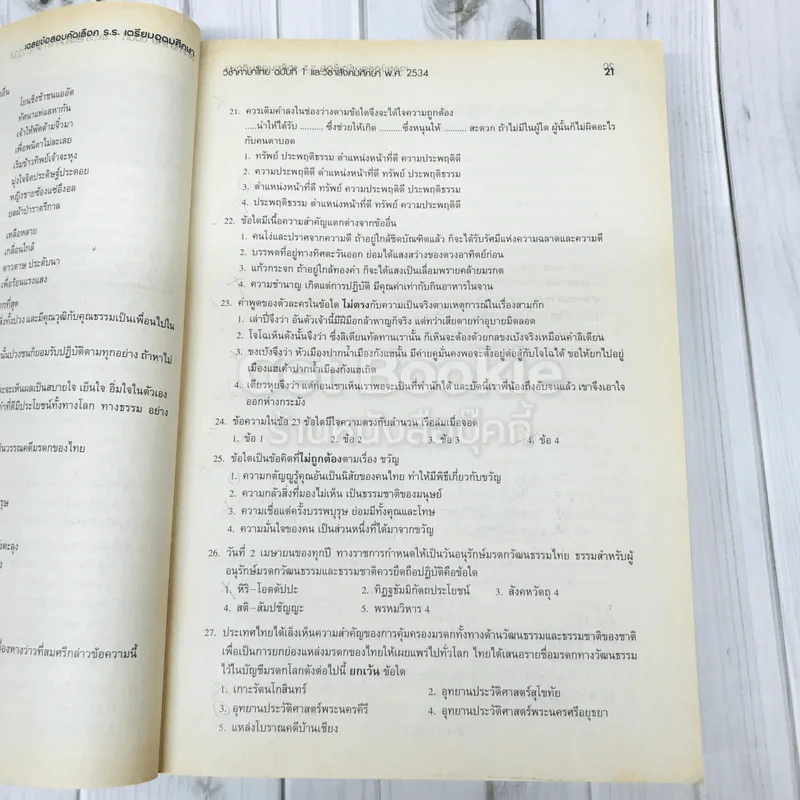 เฉลยข้อสอบคัดเลือก ร.ร. เตรียมอุดมศึกษา
โอนชิงช้าชนแออัด
ทัศนาแห่แลหากัน
เจ้าให้พัดด้ามจิ๋วมา
เพื่อพนิดาไม่ละเลย
เริ่มข้าวทิพย์เจ้าจะหุง
มุ่งใจจิตประดิษฐ์ประดอย
หญิงชายซ้องแซ่อึงอล
ยลผ้าป่าราตรีกาล
เหลือหลาย
เกลื่อนใกล้
ดาวดาษ ประดับนา
เพื่อร้อนแรงแสง
กที่สุด
ล่งทั้งปวง และมีคุณวุฒิกับคุณธรรมเป็นเพื่อนไปใน
นั้นปวงชนก็ยอมรับปฏิบัติตามทุกอย่าง ถ้าหาไม่
ะจะเห็นผลเป็นสบายใจ เย็นใจ อิ่มใจในตัวเอง
ค่าที่ดีมีประโยชน์ทั้งทางโลก ทางธรรม อย่าง
ป็นวรรณคดีมรดกของไทย
รุษ
ังตะลุง
องหางว่าวที่สมศรีกล่าวข้อความนี้
วิชาภาษาไทย ฉบับที่ 1 และวิชาสังคมศึกษา พ.ศ. 2534 21
21. ควรเติมคำลงในช่องว่างตามข้อใดจึงจะได้ใจความถูกต้อง
.....นำให้ได้รับ .......... ซึ่งช่วยให้เกิด ..........ซึ่งหนุนให้ .......... สะดวก ถ้าไม่มีในผู้ใด ผู้นั้นก็ไม่ผิดอะไร
กับคนตาบอด
1. ทรัพย์ ประพฤติธรรม ตำแหน่งหน้าที่ดี ความประพฤติดี
2. ความประพฤติดี ตำแหน่งหน้าที่ดี ทรัพย์ ประพฤติธรรม
3. ตำแหน่งหน้าที่ดี ทรัพย์ ความประพฤติดี ประพฤติธรรม
4. ประพฤติธรรม ตำแหน่งหน้าที่ดี ทรัพย์ ความประพฤติดี
22. ข้อใดมีเนื้อความสำคัญแตกต่างจากข้ออื่น
1. คนโง่และปราศจากความดี ถ้าอยู่ใกล้ชิดบัณฑิตแล้ว ก็จะได้รับรัศมีแห่งความฉลาดและความดี
2. บรรพตที่อยู่ทางทิศตะวันออก ย่อมได้แสงสว่างของดวงอาทิตย์ก่อน
3. แก้วกระจก ถ้าอยู่ใกล้ทองคำ ก็จะได้แสงเป็นเลื่อมพรายคล้ายมรกต
4. ความชำนาญ เกิดแต่การปฏิบัติ มีคุณค่าเท่ากับกินอาหารในจาน
23. คำพูดของตัวละครในข้อใด ไม่ตรงกับความเป็นจริงตามเหตุการณ์ในเรื่องสามก๊ก
1. เล่าปี่จึงว่า อันตัวเจ้านี้มีฝีมือกล้าหาญก็จริง แต่ทว่าเสียดายทำอุบายมิตลอด
2. โจโฉเห็นดังนั้นจึงว่า ซึ่งลิเตียนทัดทานเรานั้น ก็เห็นจะต้องด้วยกลขงเบ้งจริงเหมือนคำลิเตียน
3. ขงเบ้งจึงว่า หัวเมืองปากน้ำเมืองกังแฮนั้น มีค่ายคูมั่นคงพอจะตั้งอยู่ต่อสู้กับโจโฉได้ ขอให้ยกไปอยู่
เมืองแฮเค้าปากน้ำเมืองกังแฮเถิด
4. เตียวหุยจึงว่า แต่ก่อนเขาเห็นเราพอจะเป็นที่พำนักได้ และบัดนี้เราพี่น้องถึงอับจนแล้ว เขาจึงเอาใจ
ออกห่างกระมัง
24. ข้อความในข้อ 23 ข้อใดมีใจความตรงกับสำนวน เรือล่มเมื่อจอด
1. ข้อ 1 2. ข้อ 2 3. ข้อ 3 4. ข้อ 4
25. ข้อใดเป็นข้อคิดที่ไม่ถูกต้องตามเรื่อง ขวัญ
1. ความกตัญญูรู้คุณอันเป็นนิสัยของคนไทย ทำให้มีพิธีเกี่ยวกับขวัญ
2. ความกลัวสิ่งที่มองไม่เห็น เป็นธรรมชาติของมนุษย์
3. ความเชื่อแต่ครั้งบรรพบุรุษ ย่อมมีทั้งคุณและโทษ
4. ความมั่นใจของคน เป็นส่วนหนึ่งที่ได้มาจากขวัญ
26. วันที่ 2 เมษายนของทุกปี ทางราชการกำหนดให้เป็นวันอนุรักษ์มรดกวัฒนธรรมไทย ธรรมสำหรับผู้
อนุรักษ์มรดกวัฒนธรรมและธรรมชาติควรยึดถือปฏิบัติคือข้อใด
1. หิริ-โอตตัปปะ 2. ทิฏฐธัมมิกัตถประโยชน์ 3. สังคหวัตถุ 4
4. สติ-สัมปชัญญะ 5. พรหมวิหาร 4
27. ประเทศไทยได้เล็งเห็นความสำคัญของการคุ้มครองมรดกทั้งทางด้านวัฒนธรรมและธรรมชาติของชาติ
เพื่อเป็นการยกย่องแหล่งมรดกของไทยให้เผยแพร่ไปทั่วโลก ไทยได้เสนอรายชื่อมรดกทางวัฒนธรรม
ไว้ในบัญชีมรดกโลกดังต่อไปนี้ ยกเว้น ข้อใด
1. เกาะรัตนโกสินทร์ 2. อุทยานประวัติศาสตร์สุโขทัย
3. อุทยานประวัติศาสตร์พระนครคีรี 4. อุทยานประวัติศาสตร์พระนครศรีอยุธยา
5. แหล่งโบราณคดีบ้านเชียง
Bookie
ร้านหนังสือบุ๊คกี้